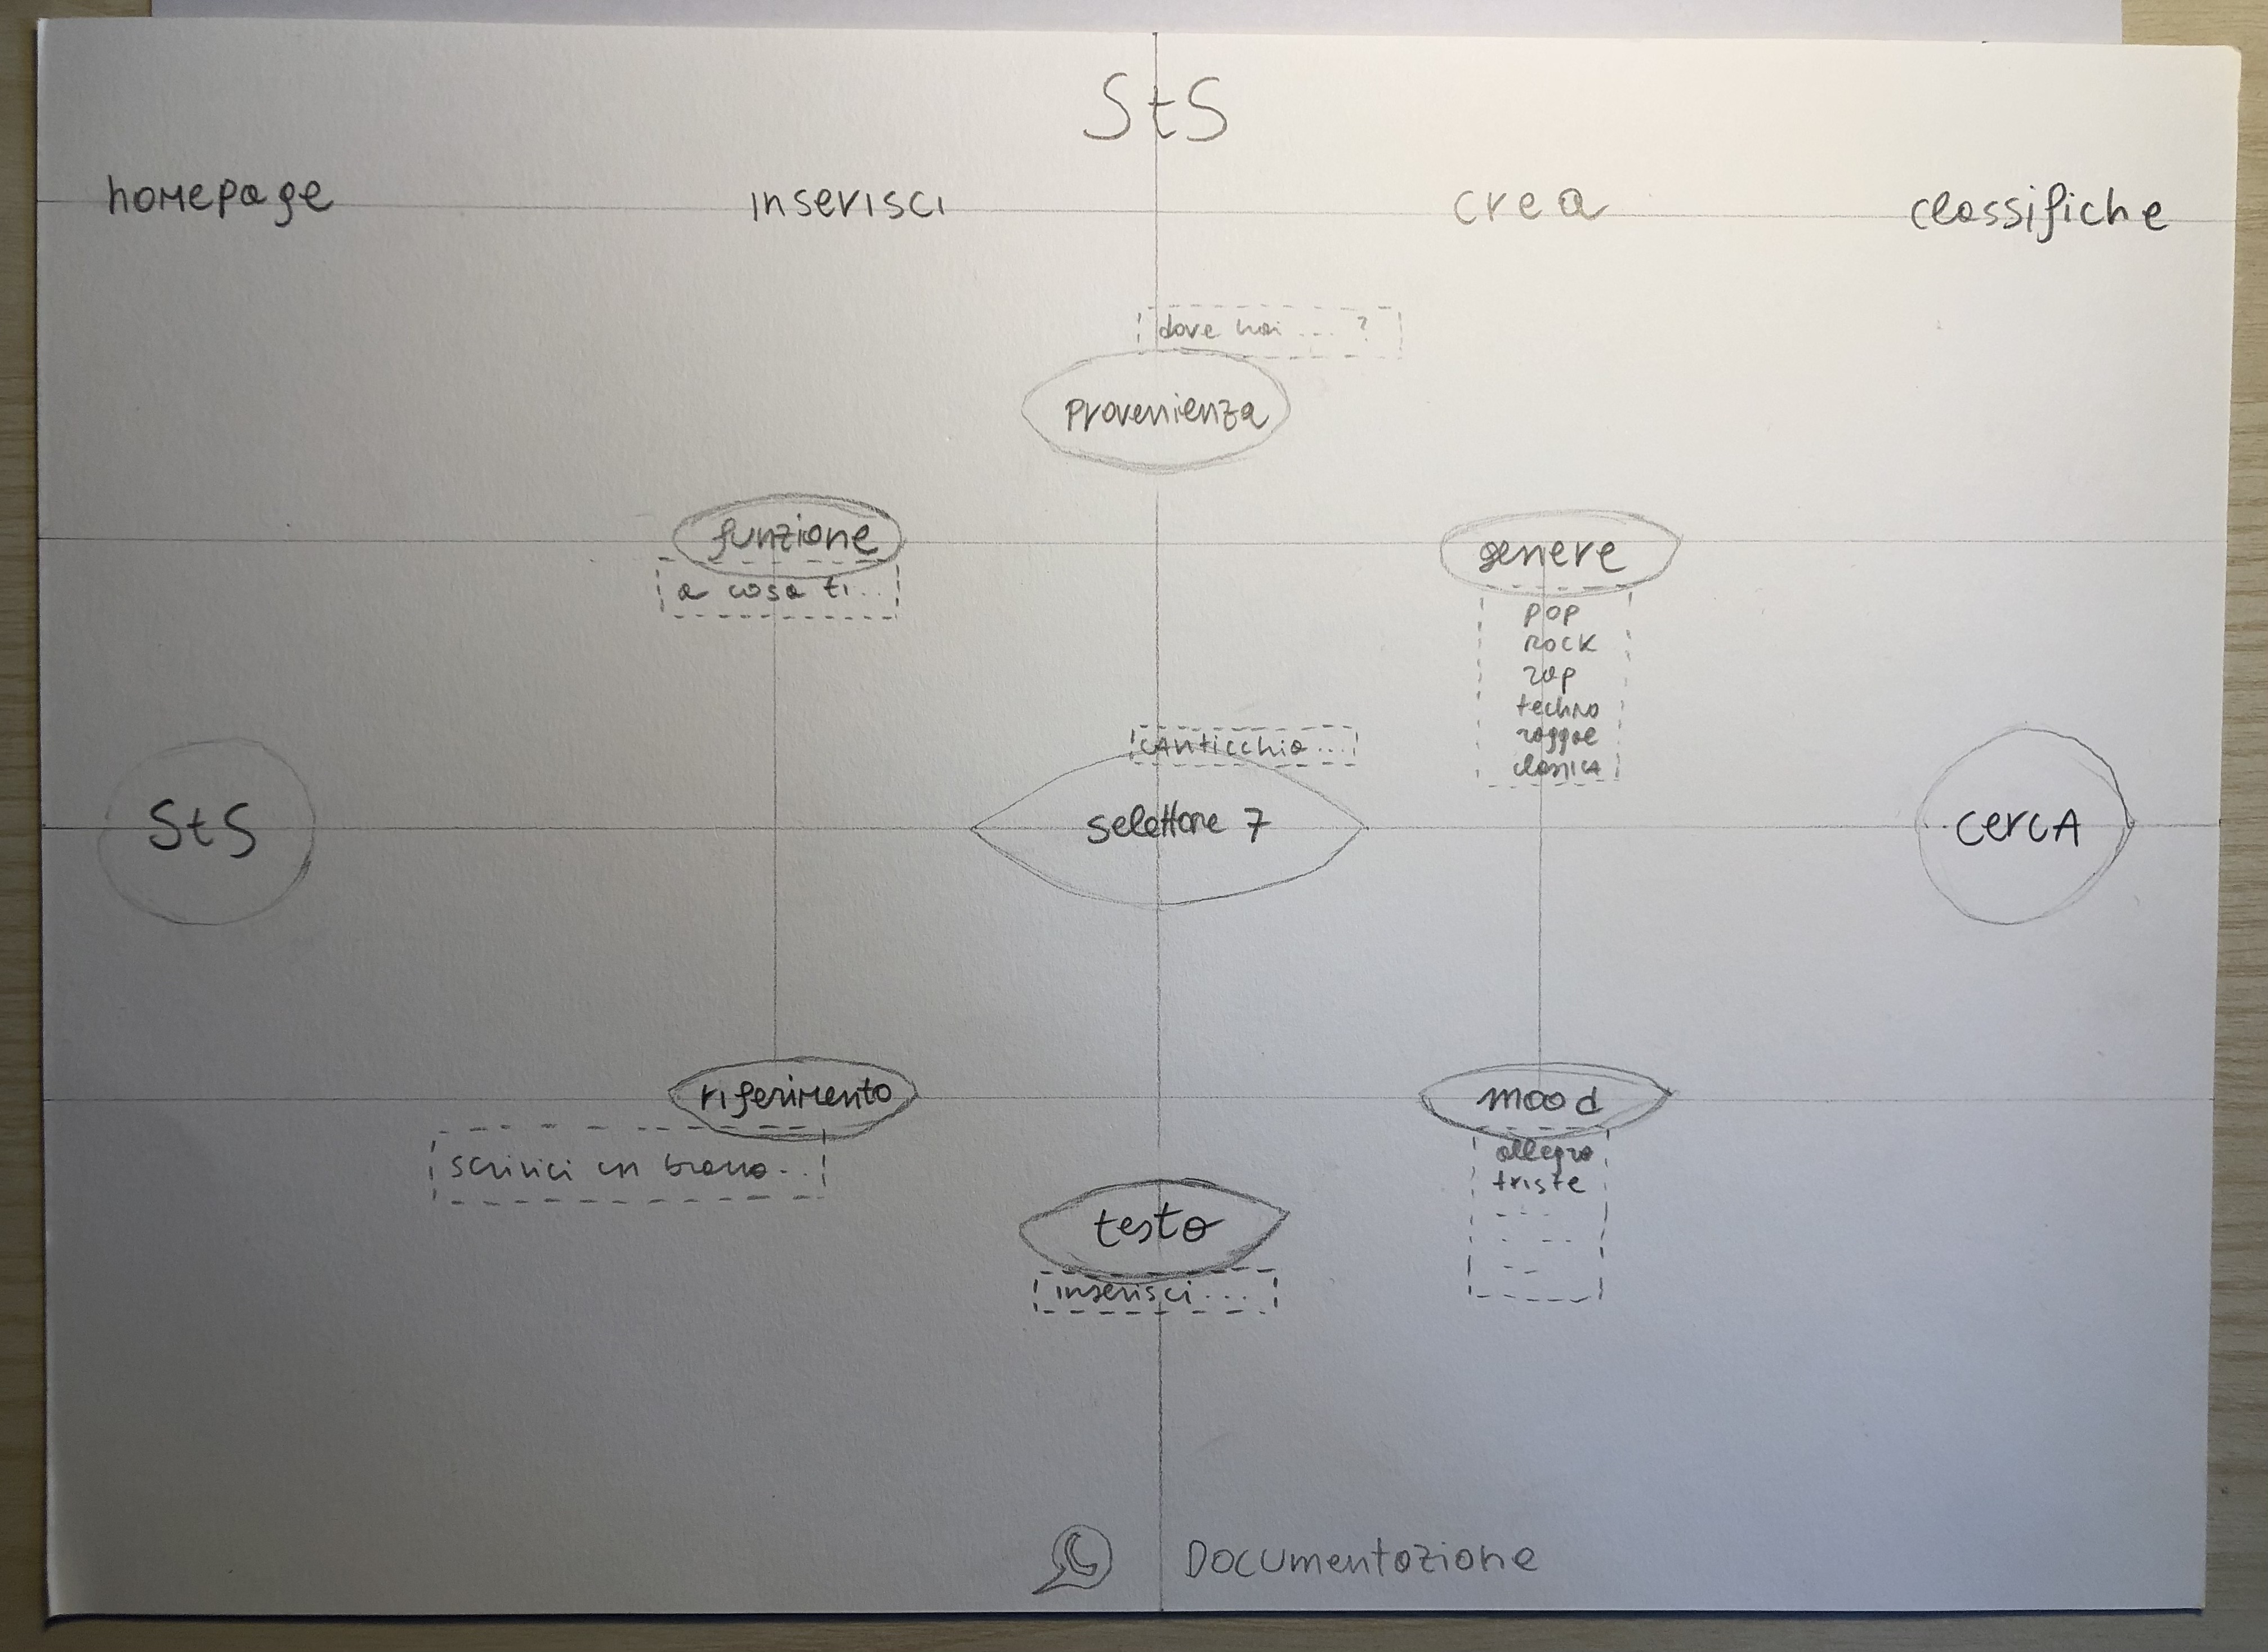 StS
homepage inserisci crea classifiche
dove hai ... ?
provenienza
funzione
a cosa ti...
genere
pop
rock
rap
techno
raggae
classica
canticchia...
StS
selettore 7
cercA
riferimento
scrivici un brano...
mood
allegro
triste
testo
inserisci ....
Documentazione